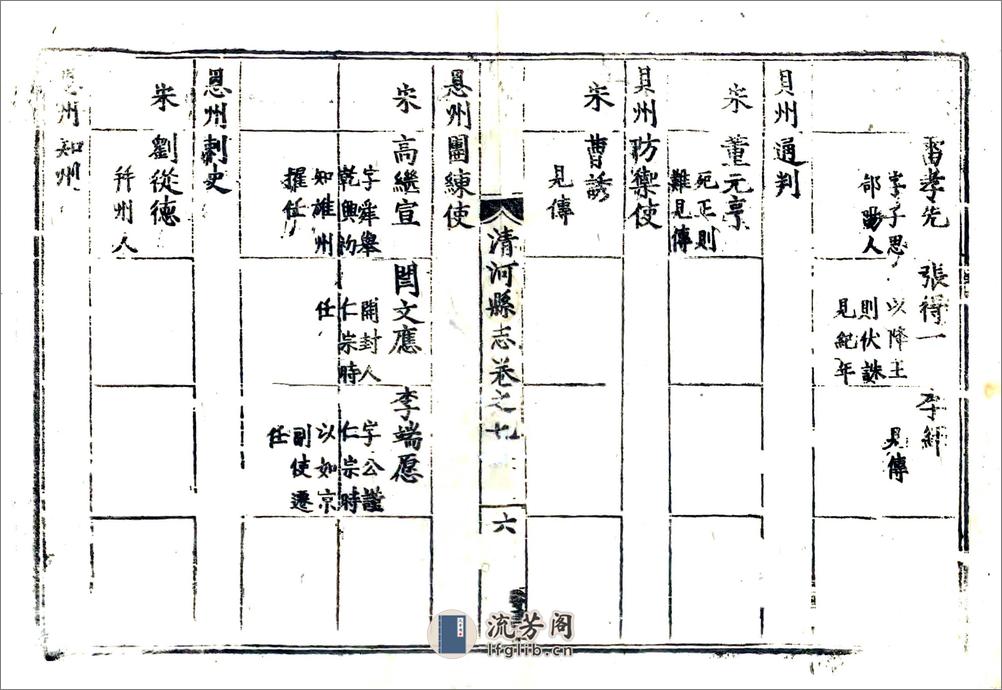 雷孝先
字子思
郃陽人
張得一
以降王
則伏誅
見紀年
李
見傳
貝州通判
宋
董元亨
死王則
難見傳
貝州防禦使
宋
曹諺
見傳
清河縣志卷之九
六
恩州團練使
宋
高繼宣
字舜舉
乾興初
知雄州
擢任
閻文應
開封人
仁宗時
任
李端愿
字公謹
仁宗時
以如京
副使遷
任
恩州刺史
宋
劉從德
幷州人
恩州知州
流芳阁
lfglib.cn